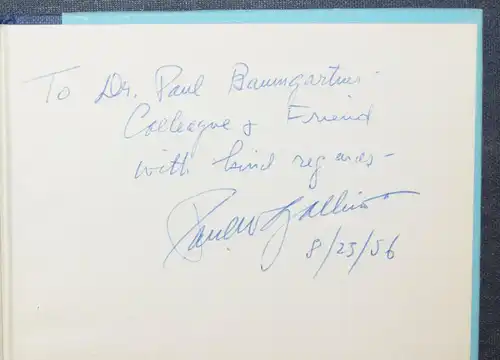 To Dr. Paul Baumgartner -
Colleague & Friend
with kind regards -
Paul W Gallico
8/23/56